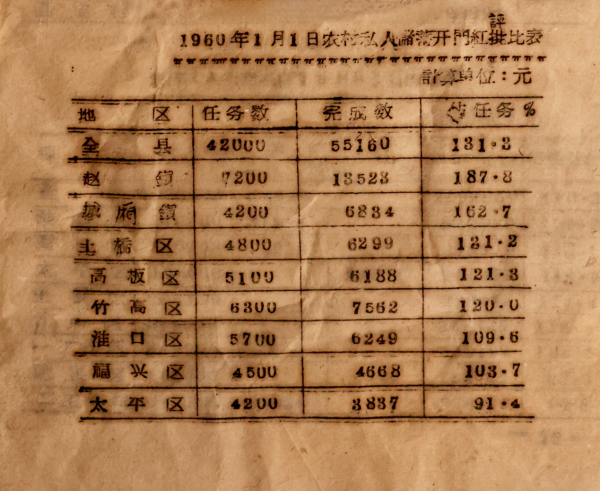 評
1960年1月1日农村私人储蓄开門紅排比表
計算单位：元
地区 任务数 完成数 佔任务%
全县 42000 55160 131·3
赵鎮 7200 13523 187·8
城廂鎮 4200 6834 162·7
土橋区 4800 6299 131·2
高板区 5100 6188 121·3
竹高区 6300 7562 120·0
淮口区 5700 6249 109·6
福兴区 4500 4668 103·7
太平区 4200 3837 91·4